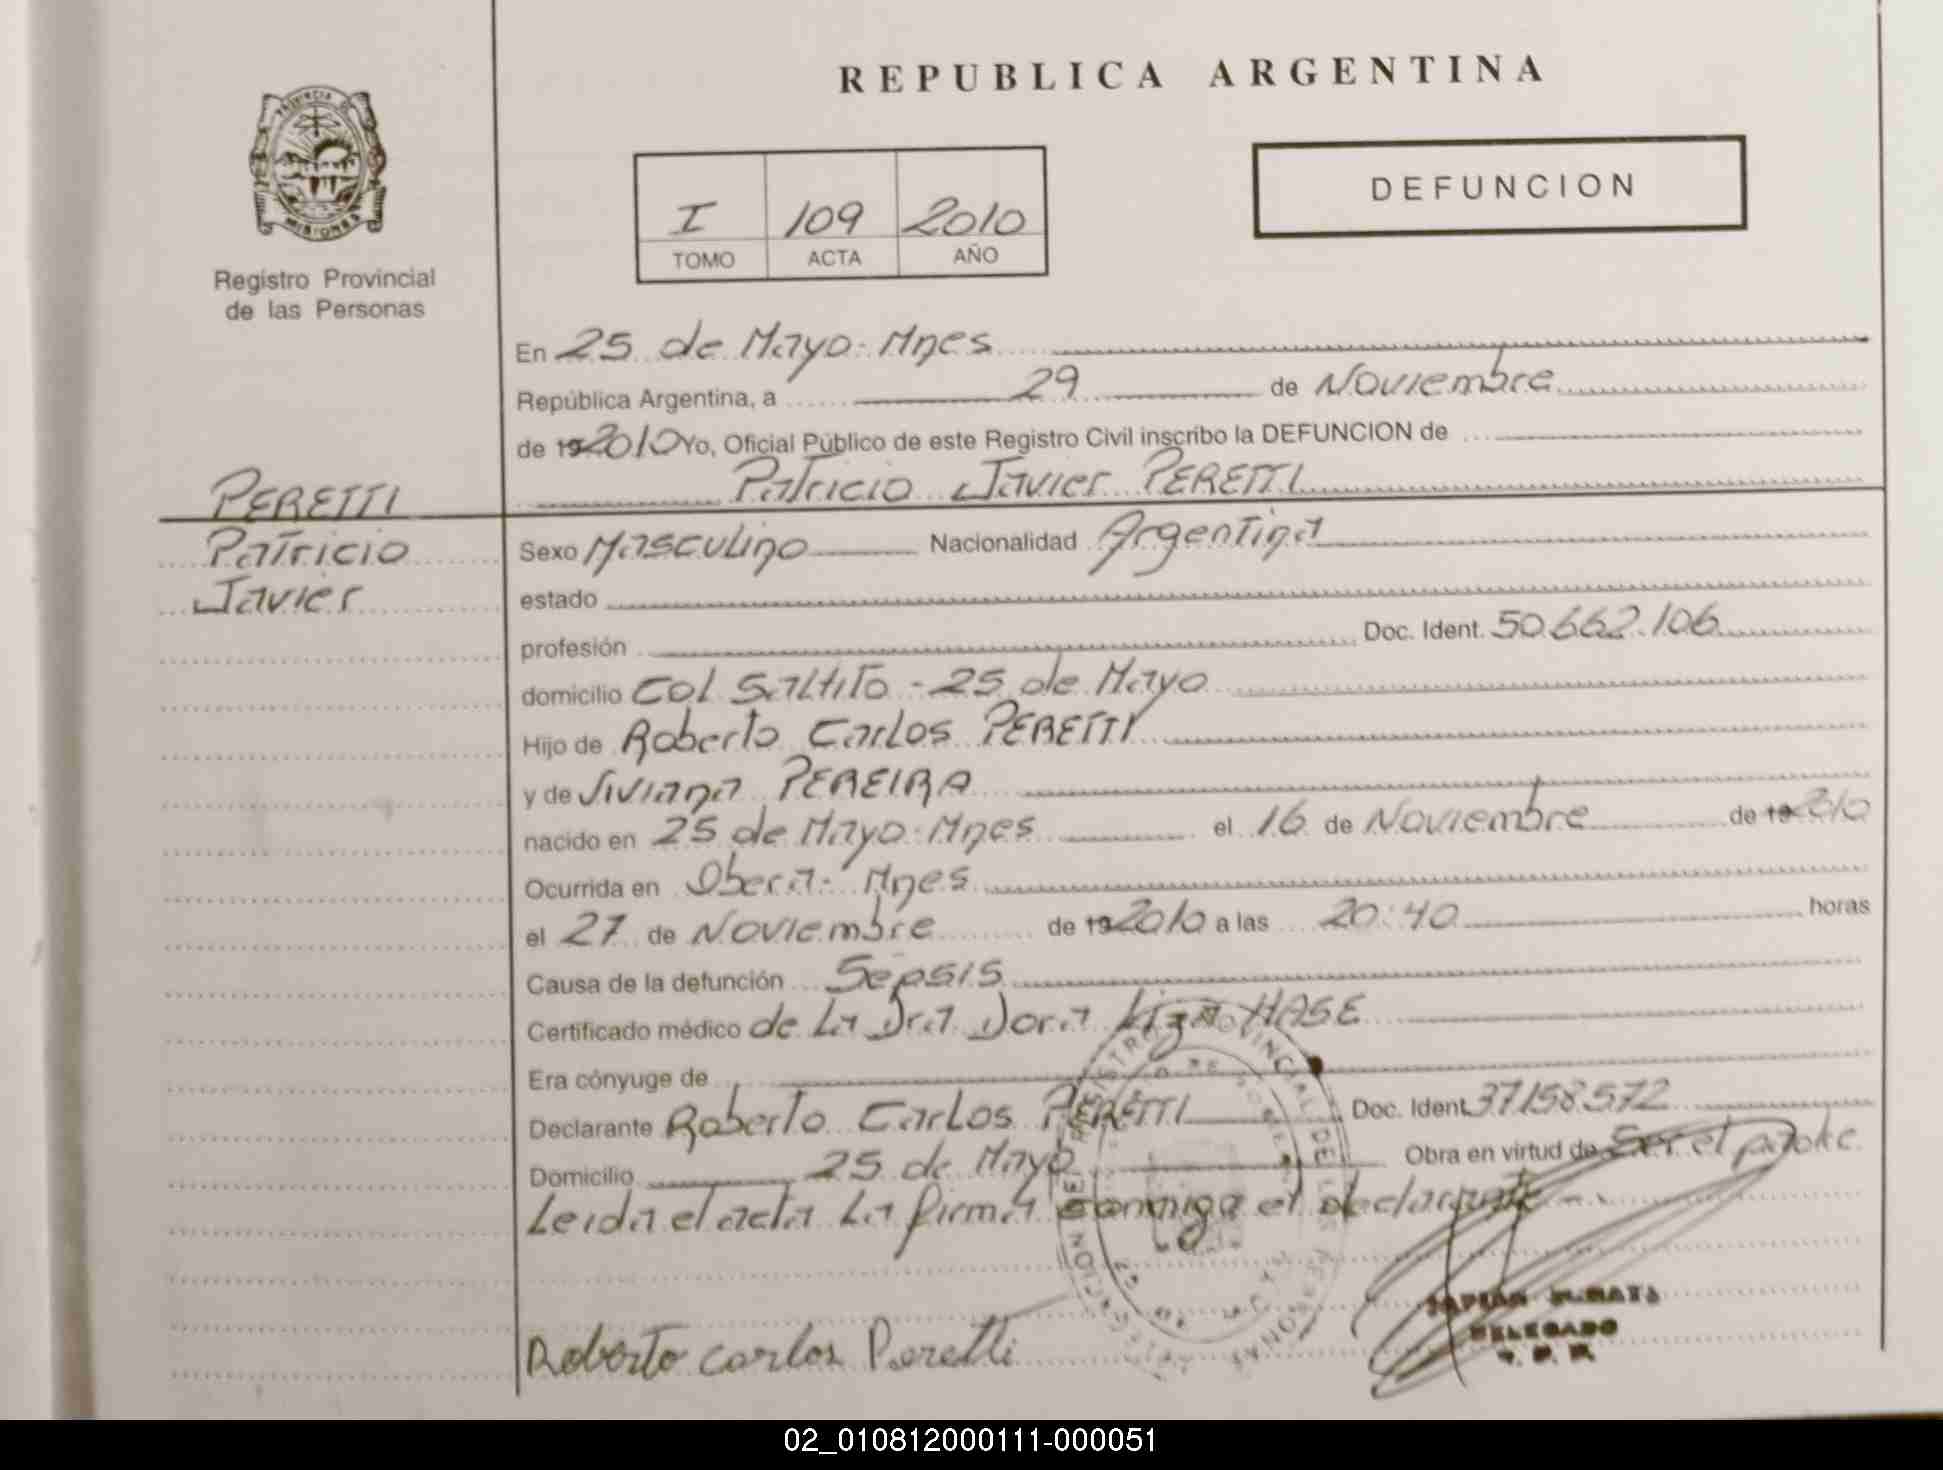 REPUBLICA ARGENTINA
PROVINCIA DE
MISIONES
Registro Provincial
de las Personas
I 109 2010
TOMO ACTA AÑO
DEFUNCION
En 25 de Mayo - Mnes
República Argentina, a 29 de Noviembre
de 19 2010 Yo, Oficial Público de este Registro Civil inscribo la DEFUNCION de
Patricio Javier PERETTI
PERETTI
Patricio
Javier
Sexo Masculino Nacionalidad Argentina
estado
profesión Doc. Ident. 50.662.106
domicilio Col Saltito - 25 de Mayo
Hijo de Roberto Carlos PERETTI
y de Viviana PEREIRA
nacido en 25 de Mayo - Mnes el 16 de Noviembre de 19 2010
Ocurrida en Obera - Mnes
el 27 de Noviembre de 19 2010 a las 20:40 horas
Causa de la defunción Sepsis
Certificado médico de la Dra Dora HASE
Era cónyuge de
Declarante Roberto Carlos PERETTI Doc. Ident. 37158572
Domicilio 25 de Mayo Obra en virtud de Ser el padre
Leida el acta la firma conmigo el declarante
Roberto Carlos Peretti
DELEGADO
02_010812000111-000051